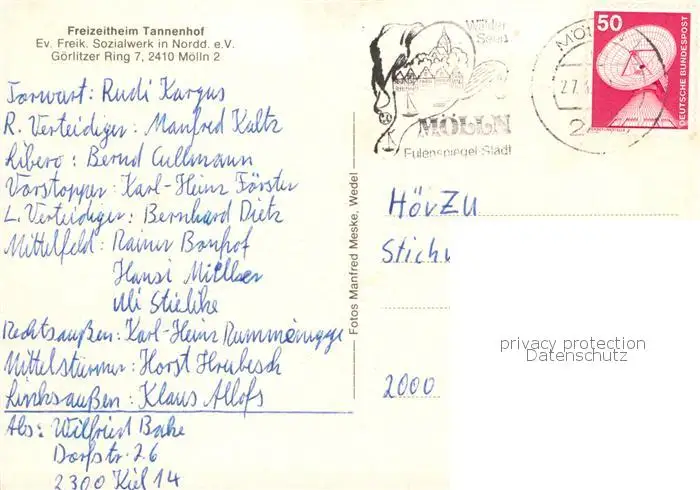 Freizeitheim Tannenhof
Ev. Freik. Sozialwerk in Nordd. e.V.
Görlitzer Ring 7, 2410 Mölln 2
Torwart: Rudi Kargus
R. Verteidiger: Manfred Kaltz
Libero: Bernd Cullmann
Vorstopper: Karl-Heinz Förster
L. Verteidiger: Bernhard Dietz
Mittelfeld: Rainer Bonhof
Hansi Müller
Uli Stielike
Rechtsaußen: Karl-Heinz Rummenigge
Mittelstürmer: Horst Hrubesch
Linksaußen: Klaus Allofs
Abs: Wilfried Bake
Dorfstr. 26
2300 Kiel 14
Fotos Manfred Meske, Wedel
MÖLLN
Eulenspiegel-Stadt
50
DEUTSCHE BUNDESPOST
HÖRZU
Stichw
2000
privacy protection
Datenschutz